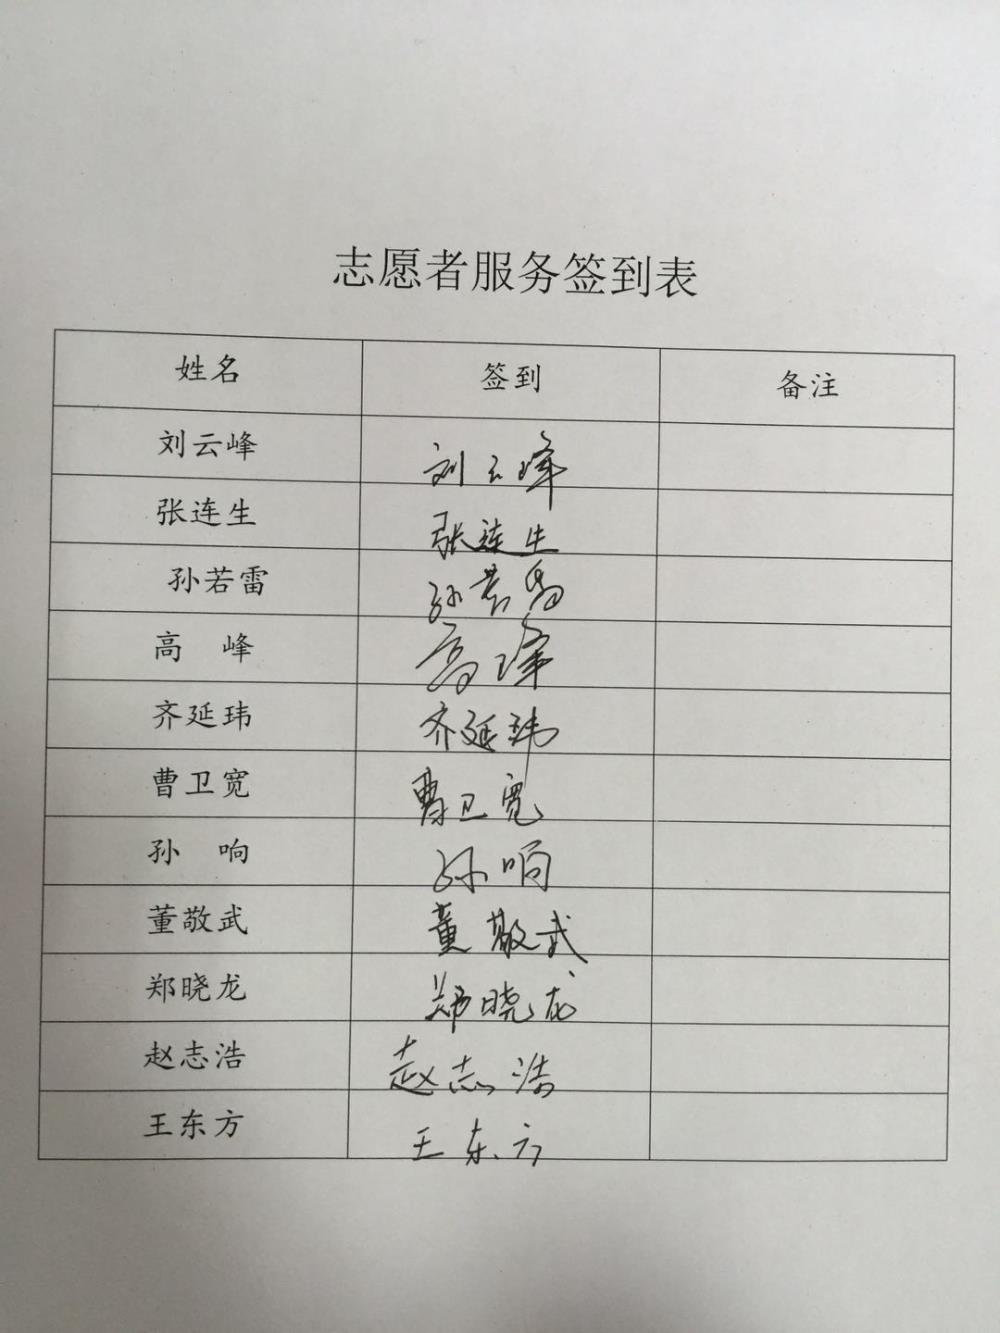 志愿者服务签到表
姓名 签到 备注
刘云峰 刘云峰
张连生 张连生
孙若雷 孙若雷
高 峰 高峰
齐延玮 齐延玮
曹卫宽 曹卫宽
孙 响 孙响
董敬武 董敬武
郑晓龙 郑晓龙
赵志浩 赵志浩
王东方 王东方